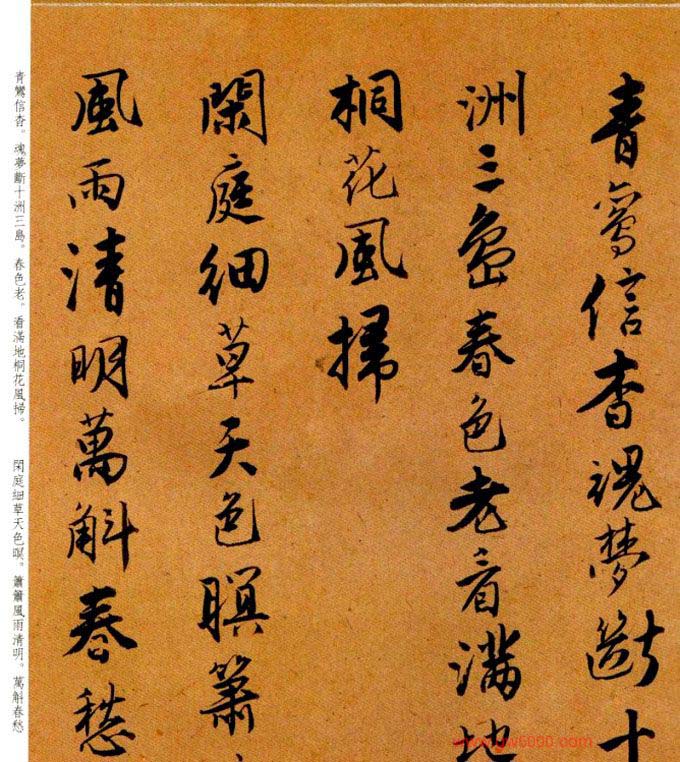 青鸞信杳魂夢斷十
洲三島春色老看滿地
桐花風掃
閑庭細草天色暝簫
風雨清明萬斛春愁
青鸞信杳。魂夢斷十洲三島。春色老。看滿地桐花風掃。 閑庭細草天色暝。簫簫風雨清明。萬斛春愁